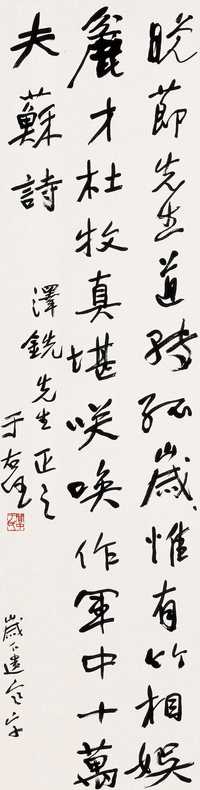 晚節先生道轉孤歲惟有竹相娛
麄才杜牧真堪咲喚作軍中十萬
夫 蘇詩
澤銑先生正之
于右任
歲下遺寒字